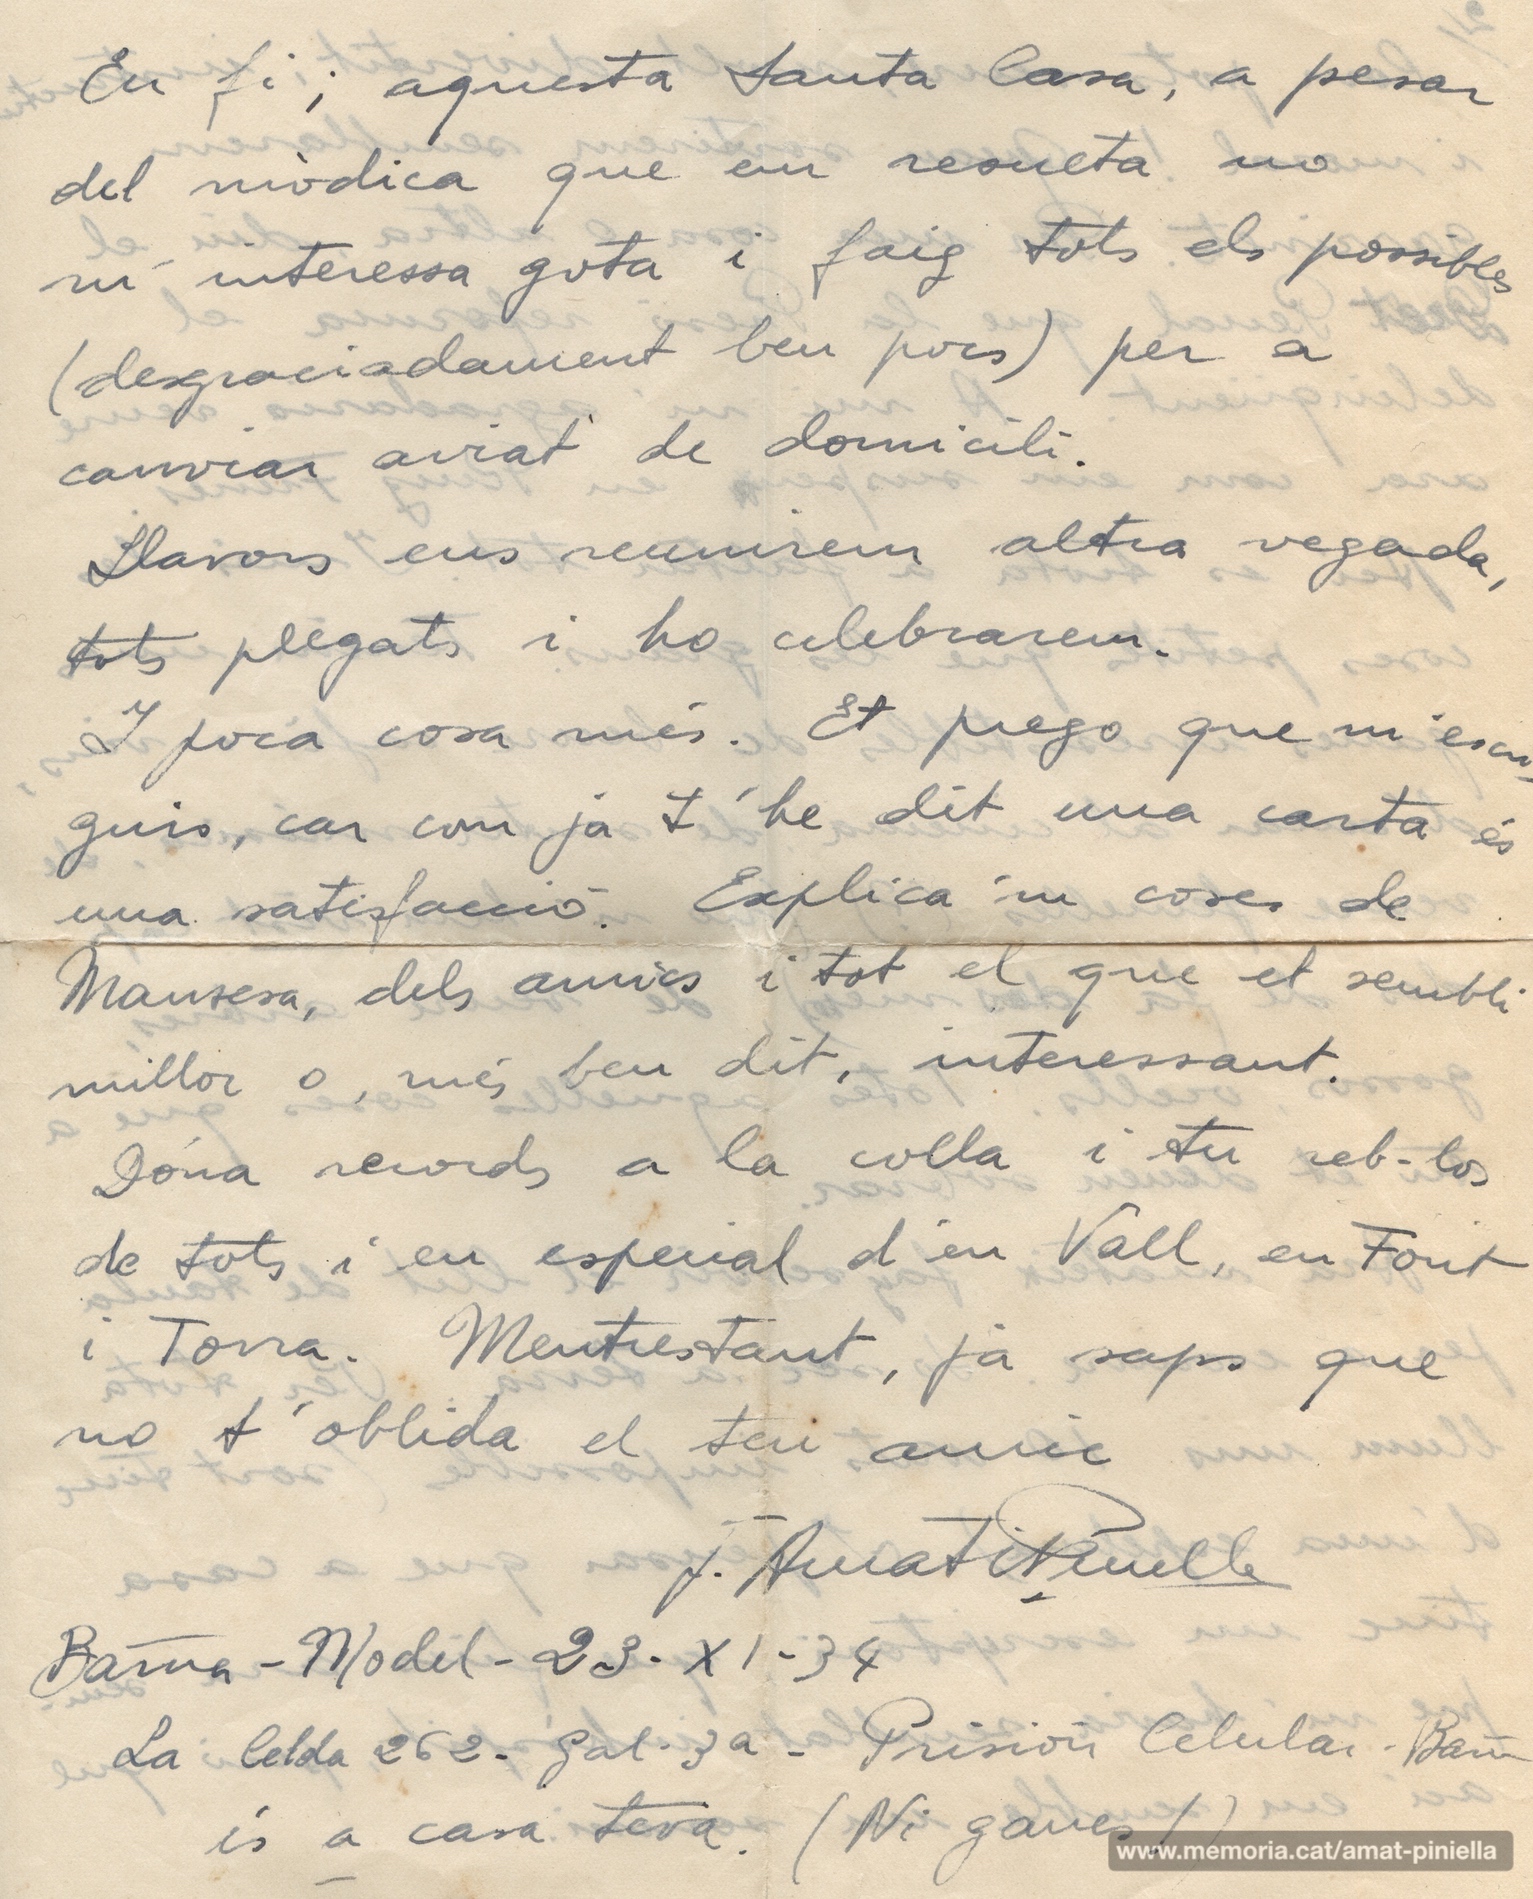 En fi; aquesta Santa Casa, a pesar
del mòdica que em resulta no
m'interessa gota i faig tots els possibles
(desgraciadament ben pocs) per a
canviar aviat de domicili.
Llavors ens reunirem altra vegada,
tots plegats i ho celebrarem.
I poca cosa més. Et prego que m'escri-
guis, car com ja t'he dit una carta és
una satisfacció. Explica'm coses de
Manresa, dels amics i tot el que et sembli
millor o, més ben dit, interessant.
Dóna records a la colla i tu reb-los
de tots i en especial d'en Vall, en Font
i Torra. Mentrestant, ja saps que
no t'oblida el teu amic
J. Amat i Piniella
Barna - Model - 23 - XI - 34
La Celda 262 - Gal. 3a - Prisión Celular - Barna
és a casa teva. (Ni ganes!)
www.memoria.cat/amat-piniella